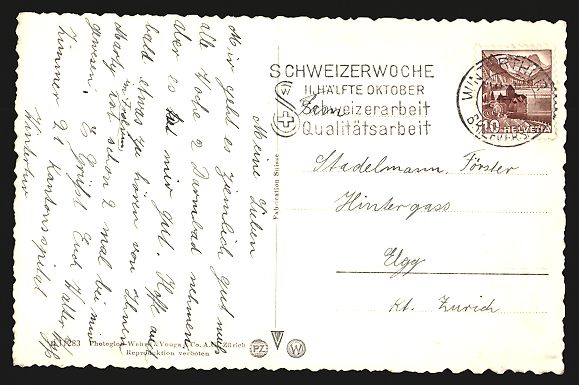 Meine Lieben
Mir geht es ziemlich gut muss
alle Tage 2 Darmbad nehmen
aber es tut mir gut. Hoffe auch
bald etwas zu hören von Ihnen
war schon 2 mal bei mir
gewesen. Es Grüsst Euch Walter
Zimmer 92 Kantonsspital
Winterthur
11283 Photoglob-Wehrli & Vouga & Co. A.G. Zürich
Reproduktion verboten
Fabrication Suisse
PZ
W
SCHWEIZERWOCHE
II. HÄLFTE OKTOBER
Schweizerarbeit
Qualitätsarbeit
WINTERTHUR
10 HELVETIA
Stadelmann, Förster
Hintergass
Elgg
Kt. Zürich